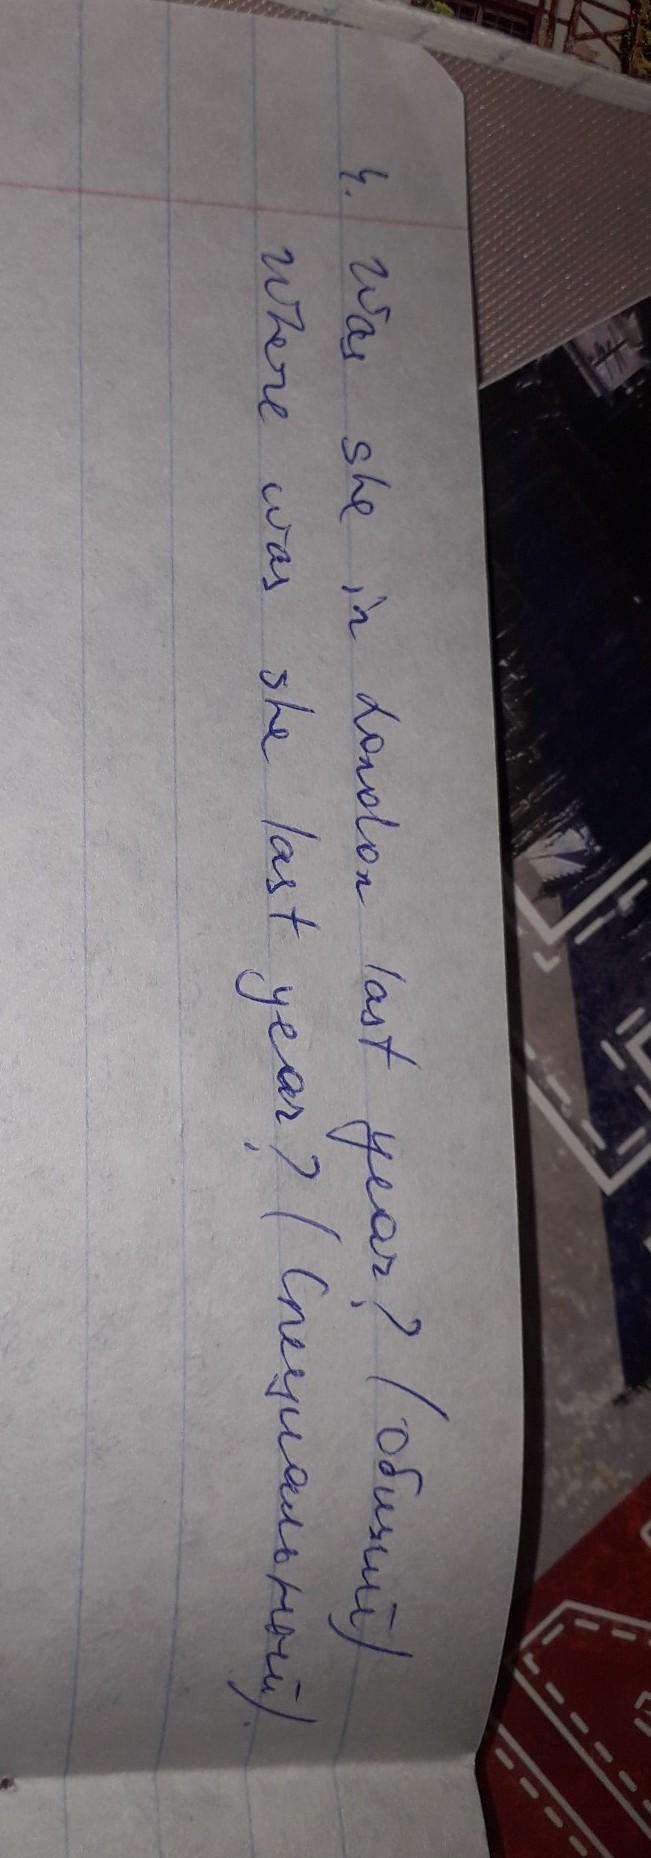 4. Was she in London last year? (общий)
Where was she last year? (Специальный)